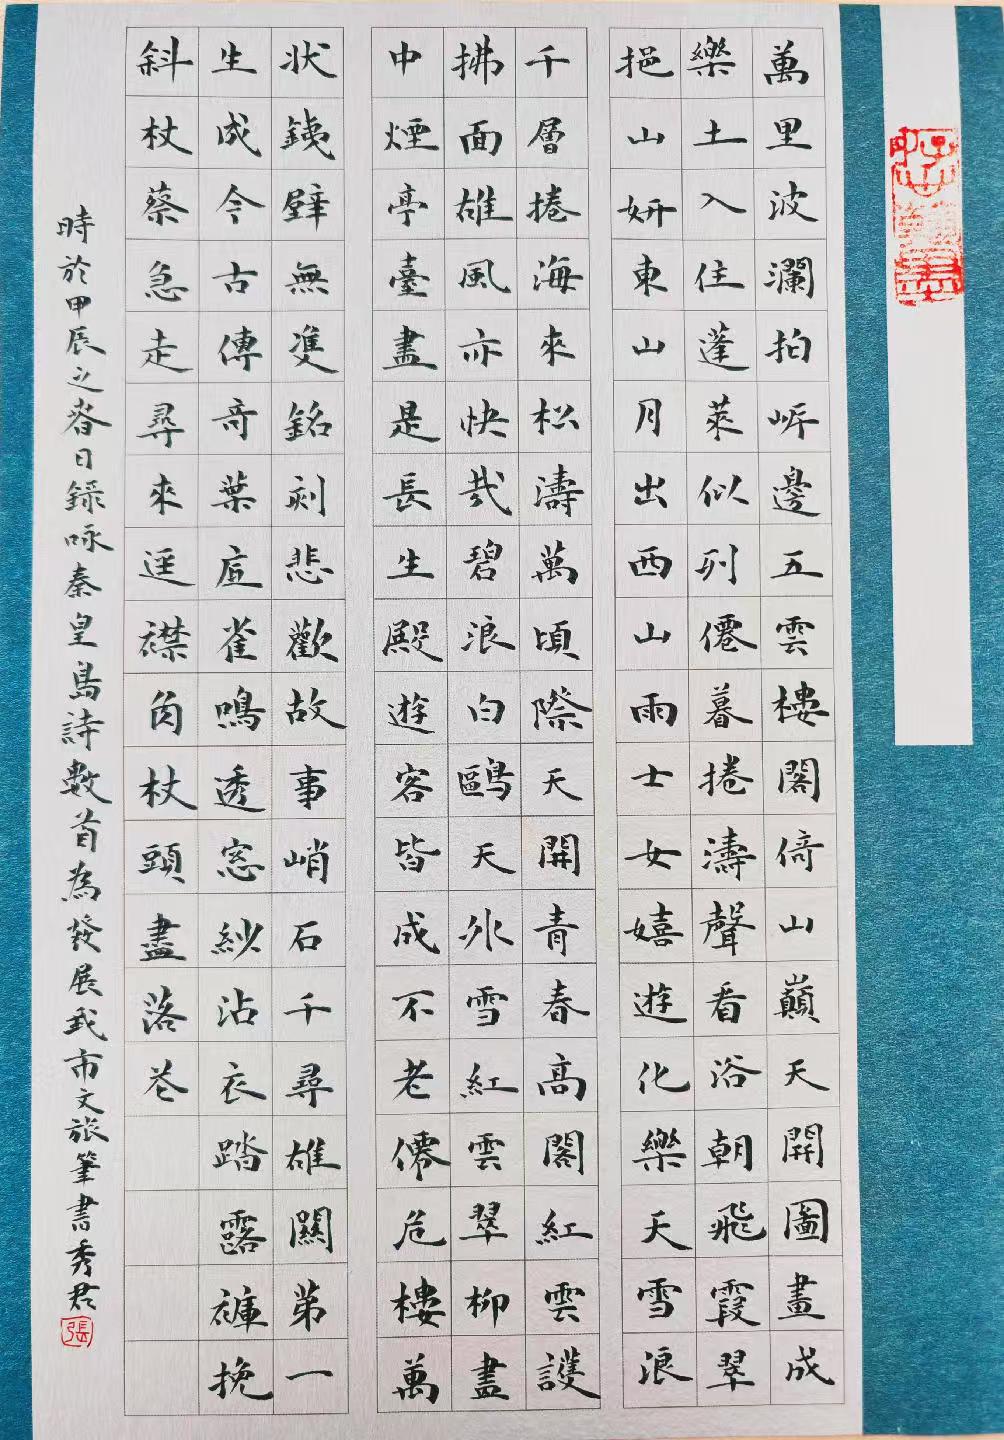 萬里波瀾拍岍邊五雲樓閣倚山巔天開圖畫成
樂土入住蓬萊似列僊暮捲濤聲看浴朝飛霞翠
挹山妍東山月出西山雨士女嬉遊化樂天雪浪
千層捲海來松濤萬頃際天開青春高閣紅雲護
拂面雄風亦快哉碧浪白鷗天外雪紅雲翠柳畫
中煙亭臺盡是長生殿遊客皆成不老僊危樓萬
狀銕壁無雙銘刻悲歡故事峭石千尋雄關第一
生成今古傳奇葉底雀鳴透窓紗沾衣踏露褲挽
斜杖藜急走尋來逕襟角杖頭盡落花
時於甲辰之春日録咏秦皇島詩數首為發展我市文旅筆書秀君
張